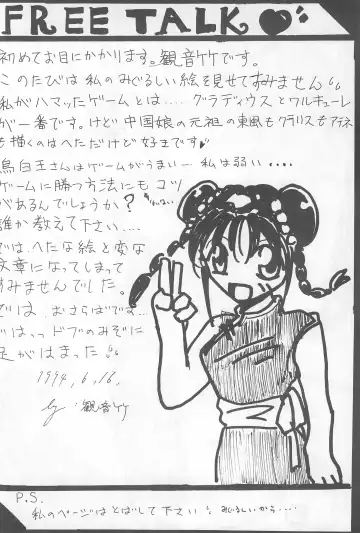 FREE TALK
初めてお目にかかります。観音竹です。
このたびは私のみぐるしい絵を見せてすみません
私がハマッたゲームとは.... グラディウスとワルキューレ
が一番です。けど中国娘の元祖の東風もクラリスもアテネ
も描くのはへただけど好きです
鳥白王さんはゲームがうまいー 私は弱い....
ゲームに勝つ方法にもコツ
があるんでしょうか?
誰か教えて下さい....
では、へたな絵と変な
文章になってしまって
すみませんでした。
では おさらばです...
ではっっ ドブのみぞに
足がはまった
1994.6.16.
by 観音竹
P.S.
私のページはとばして下さい みぐるしいから....